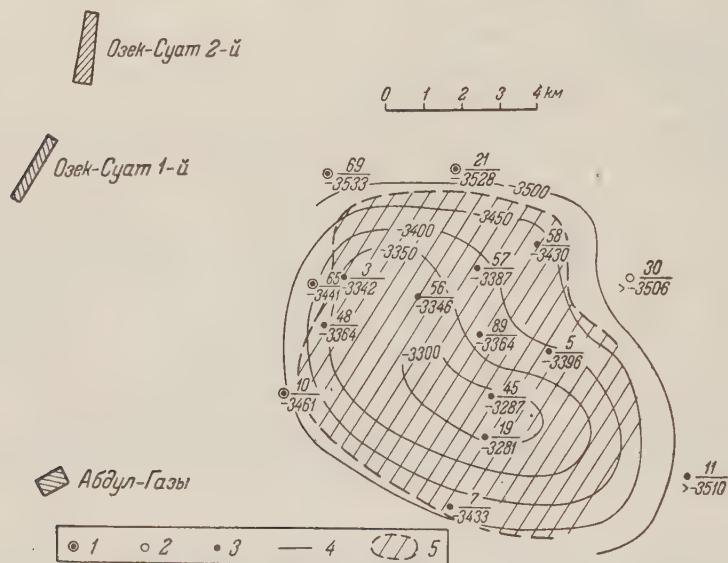 Озек-Суат 2-й
0 1 2 3 4 км
Озек-Суат 1-й
69
-3533
21
-3528
-3500
-3450
-3400
-3350
58
-3430
57
-3387
30
>-3506
65
-3441
3
-3342
56
-3346
48
-3364
89
-3364
5
-3396
-3300
10
-3461
45
-3287
19
-3281
11
>-3510
Абдул-Газы
7
-3433
1 2 3 4 5